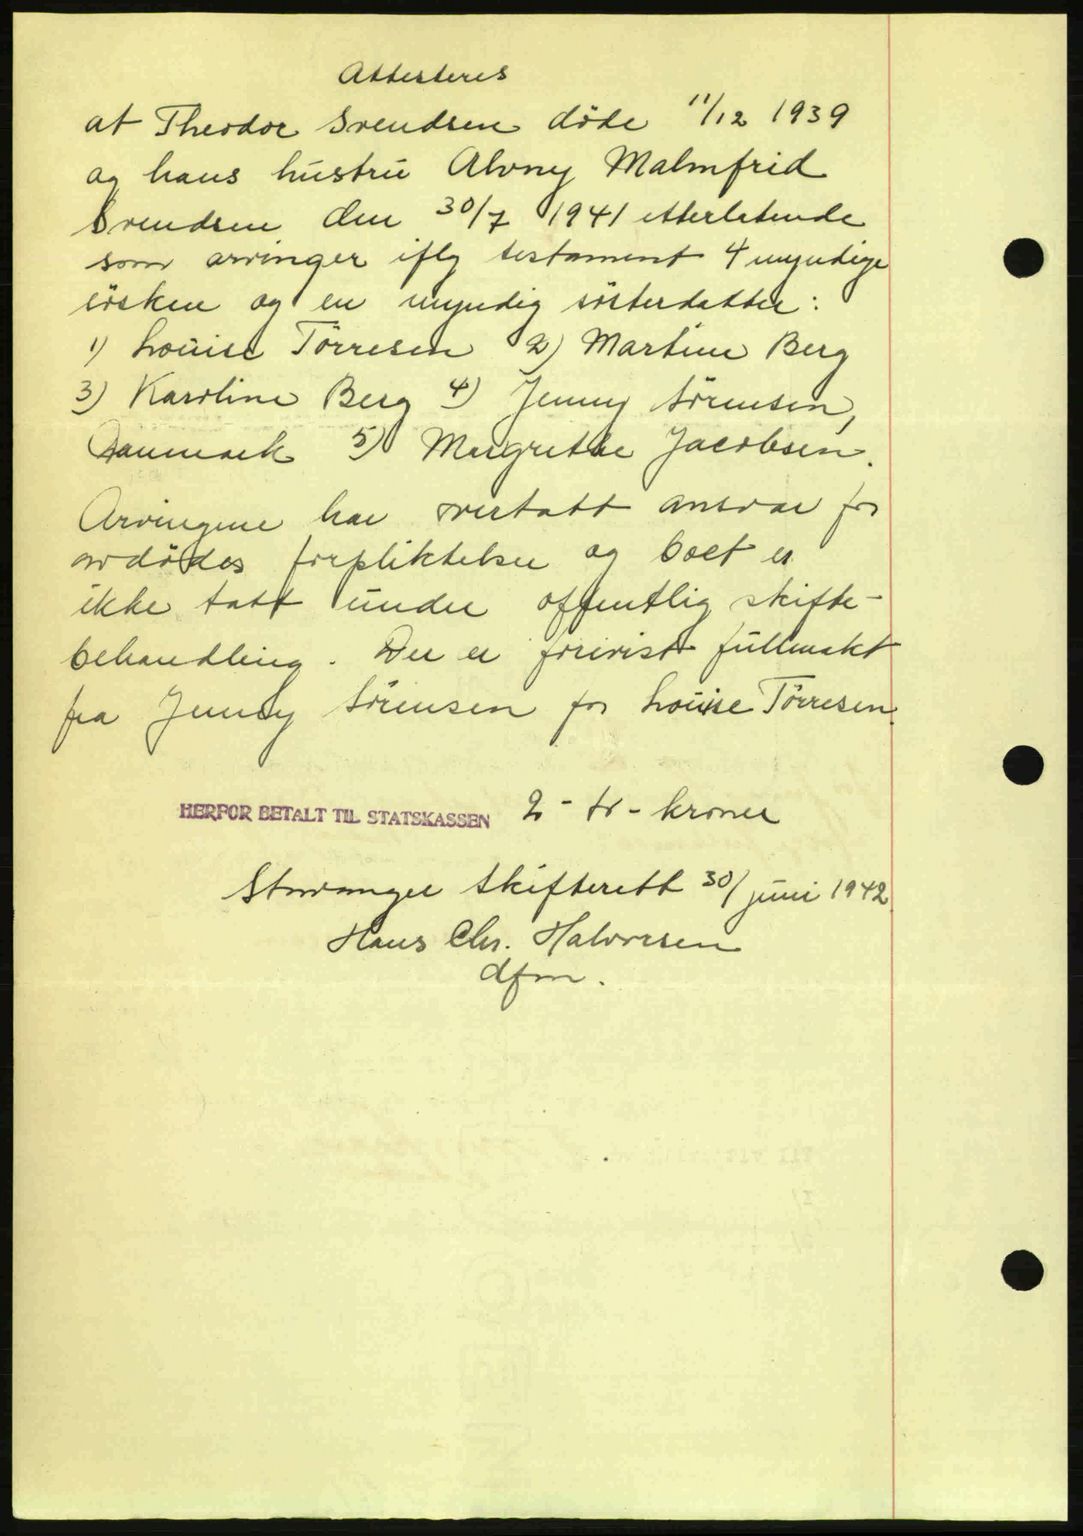 Attesteres
at Theodor Svendsen döde 11/12 1939
og hans hustru Alvny Malmfrid
Svendsen den 30/7 1941 etterlatende
som arvinger iflg testament 4 myndige
sösken og en myndig sösterdatter:
1) Louise Törresen 2) Martine Berg
3) Karoline Berg 4) Jenny Sörensen,
Danmark 5) Margrethe Jacobsen.
Arvingene har overtatt ansvar for
avdödes forpliktelser og boet er
ikke tatt under offentlig skifte-
behandling. Der er forevist fullmakt
fra Jenny Sörensen for Louise Törresen.
HERFOR BETALT TIL STATSKASSEN 2 - to - kroner
Stavanger Skifterett 30/juni 1942
Hans Chr. Halvorsen
dfm.